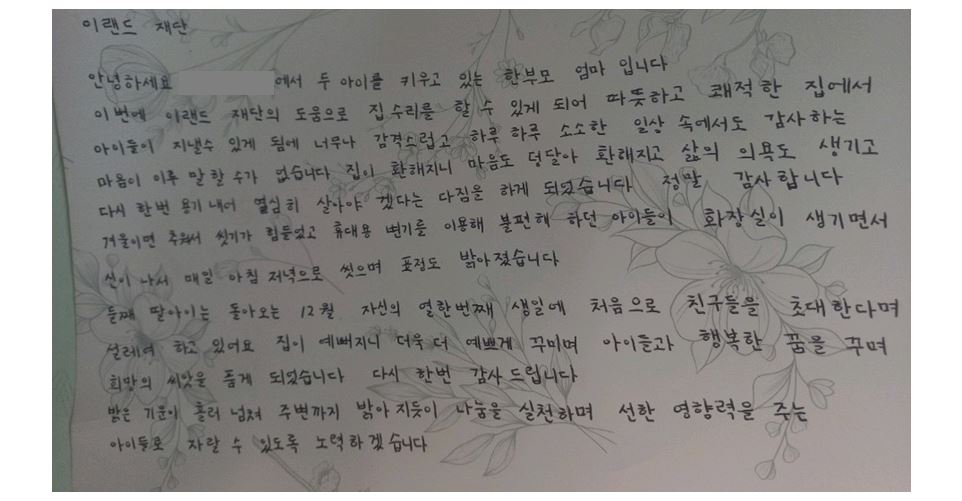 이랜드 재단
안녕하세요 에서 두 아이를 키우고 있는 한부모 엄마 입니다
이번에 이랜드 재단의 도움으로 집수리를 할 수 있게 되어 따뜻하고 쾌적한 집에서
아이들이 지낼수 있게 됨에 너무나 감격스럽고 하루 하루 소소한 일상 속에서도 감사하는
마음이 이루 말할수가 없습니다 집이 환해지니 마음도 덩달아 환해지고 삶의 의욕도 생기고
다시 한번 용기내어 열심히 살아야 겠다는 다짐을 하게 되었습니다 정말 감사합니다
겨울이면 추워서 씻기가 힘들었고 휴대용 변기를 이용해 불편해 하던 아이들이 화장실이 생기면서
신이 나서 매일 아침 저녁으로 씻으며 표정도 밝아졌습니다
둘째 딸아이는 돌아오는 12월 자신의 열한번째 생일에 처음으로 친구들을 초대한다며
설레여 하고 있어요 집이 예뻐지니 더욱 더 예쁘게 꾸미며 아이들과 행복한 꿈을 꾸며
희망의 씨앗을 품게 되었습니다 다시 한번 감사드립니다
밝은 기운이 흘러 넘쳐 주변까지 밝아지듯이 나눔을 실천하며 선한 영향력을 주는
아이들로 자랄 수 있도록 노력하겠습니다